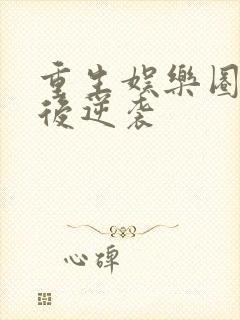 重生娛樂圈
後逆袭
心碑